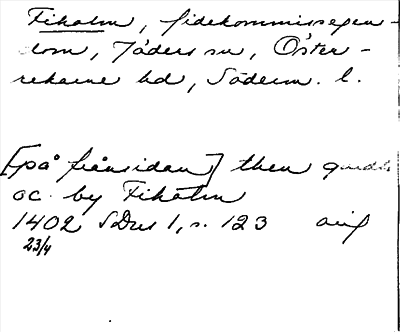 Fiholm, fidekommissegen-
dom, Jäders sn, Öster-
rekarne hd, Söderm. l.
[på frånsidan] then
oc by Fiholm
1402 SDns 1, s. 123
23/4